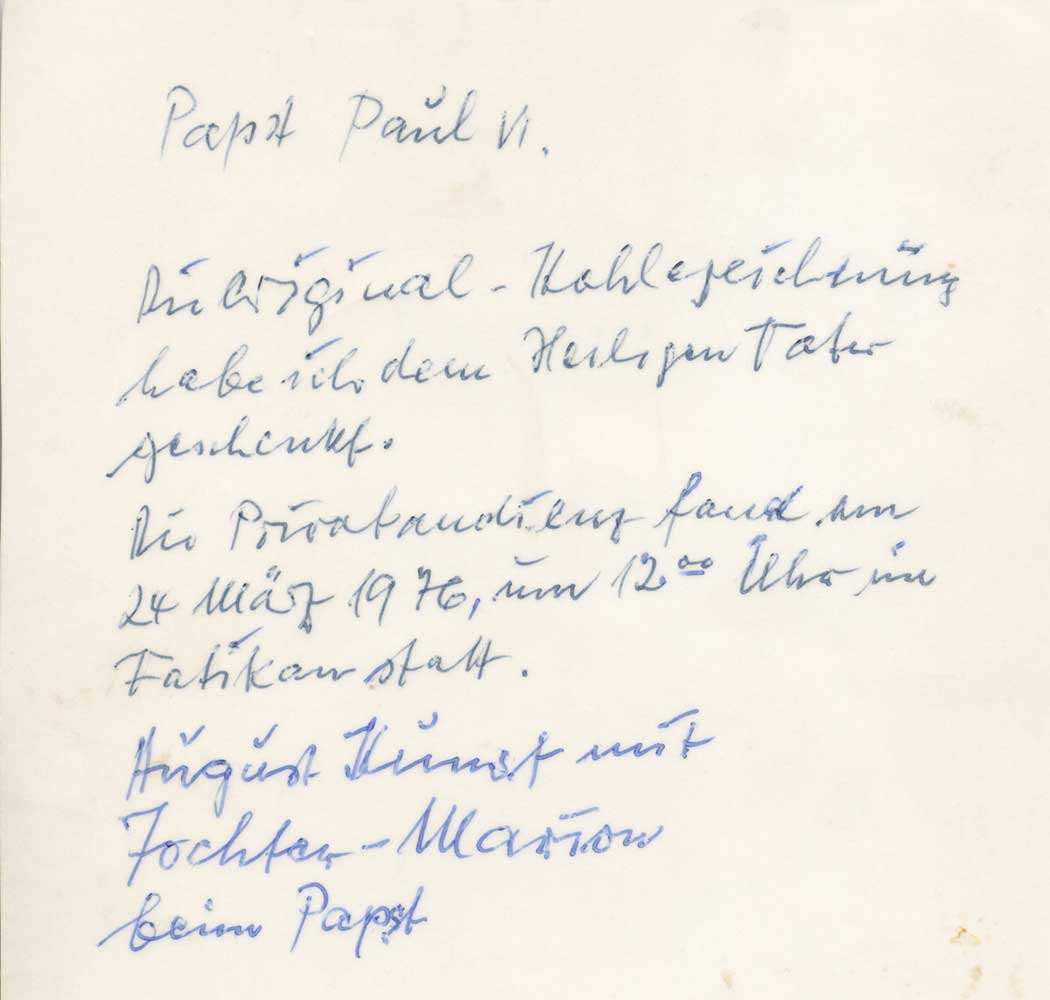 Papst Paul VI.
Die Original-Kohlezeichnung
habe ich dem Heiligen Fater
geschenkt.
Die Privataudienz fand am
24 März 1976, um 12⁰⁰ Uhr im
Fatikanstatt.
August Kunst mit
Tochter-Marion
beim Papst